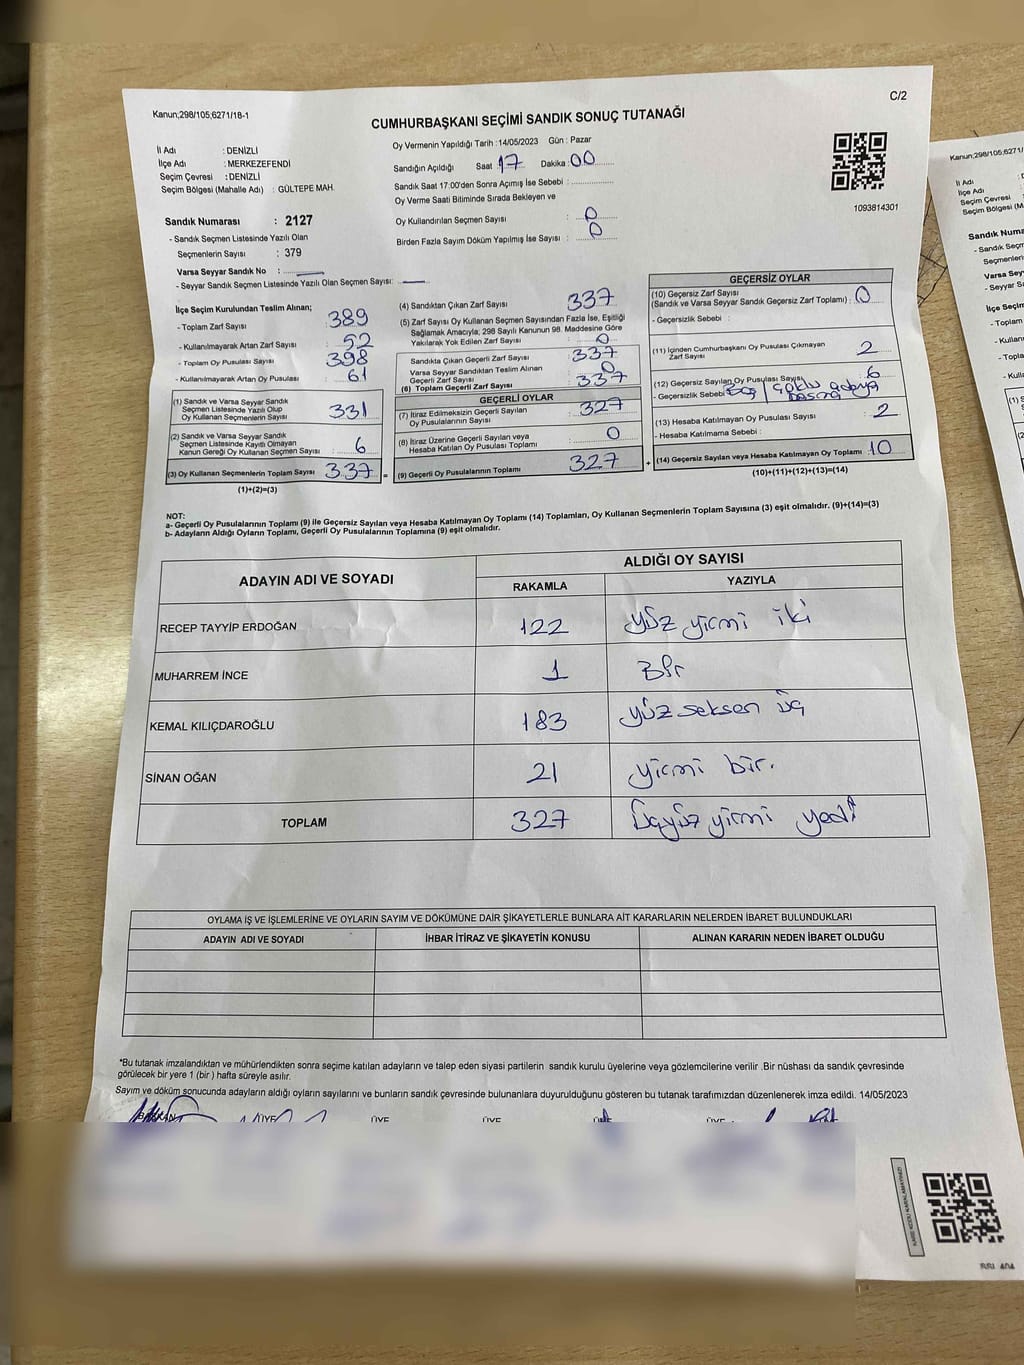 C/2
Kanun;298/105,6271/18-1
CUMHURBAŞKANI SEÇİMİ SANDIK SONUÇ TUTANAĞI
İl Adı : DENİZLİ
İlçe Adı : MERKEZEFENDİ
Seçim Çevresi : DENİZLİ
Seçim Bölgesi (Mahalle Adı) : GÜLTEPE MAH.
Oy Vermenin Yapıldığı Tarih :14/05/2023 Gün : Pazar
Sandığın Açıldığı Saat 17 Dakika :00
Sandık Saat 17:00'den Sonra Açımış İse Sebebi :
Oy Verme Saati Bitiminde Sırada Bekleyen ve
Oy Kullandırılan Seçmen Sayısı : 0
Birden Fazla Sayım Döküm Yapılmış İse Sayısı : 0
1093814301
Sandık Numarası : 2127
- Sandık Seçmen Listesinde Yazılı Olan
Seçmenlerin Sayısı : 379
Varsa Seyyar Sandık No : —
- Seyyar Sandık Seçmen Listesinde Yazılı Olan Seçmen Sayısı: —
İlçe Seçim Kurulundan Teslim Alınan;
- Toplam Zarf Sayısı : 389
- Kullanılmayarak Artan Zarf Sayısı : 52
- Toplam Oy Pusulası Sayısı : 398
- Kullanılmayarak Artan Oy Pusulası : 61
(1) Sandık ve Varsa Seyyar Sandık
Seçmen Listesinde Yazılı Olup
Oy Kullanan Seçmenlerin Sayısı : 331
(2) Sandık ve Varsa Seyyar Sandık
Seçmen Listesinde Kayıtlı Olmayan
Kanun Gereği Oy Kullanan Seçmen Sayısı : 6
(3) Oy Kullanan Seçmenlerin Toplam Sayısı : 337
(1)+(2)=(3)
(4) Sandıktan Çıkan Zarf Sayısı : 337
(5) Zarf Sayısı Oy Kullanan Seçmen Sayısından Fazla İse, Eşitliği
Sağlamak Amacıyla; 298 Sayılı Kanunun 98. Maddesine Göre
Yakılarak Yok Edilen Zarf Sayısı : 0
Sandıkta Çıkan Geçerli Zarf Sayısı : 337
Varsa Seyyar Sandıktan Teslim Alınan
Geçerli Zarf Sayısı : 0
(6) Toplam Geçerli Zarf Sayısı : 337
GEÇERLİ OYLAR
(7) İtiraz Edilmeksizin Geçerli Sayılan
Oy Pusulası Sayısı : 327
(8) İtiraz Üzerine Geçerli Sayılan veya
Hesaba Katılan Oy Pusulası Toplamı : 0
(9) Geçerli Oy Pusulalarının Toplamı : 327
GEÇERSİZ OYLAR
(10) Geçersiz Zarf Sayısı
(Sandık ve Varsa Seyyar Sandık Geçersiz Zarf Toplamı) : 0
- Geçersizlik Sebebi :
(11) İçinden Cumhurbaşkanı Oy Pusulası Çıkmayan
Zarf Sayısı : 2
(12) Geçersiz Sayılan Oy Pusulası Sayısı : 6
- Geçersizlik Sebebi : Boş / Çoklu adaya
basma
(13) Hesaba Katılmayan Oy Pusulası Sayısı : 2
- Hesaba Katılmama Sebebi :
(14) Geçersiz Sayılan veya Hesaba Katılmayan Oy Toplamı : 10
(10)+(11)+(12)+(13)=(14)
NOT:
a- Geçerli Oy Pusulalarının Toplamı (9) ile Geçersiz Sayılan veya Hesaba Katılmayan Oy Toplamı (14) Toplamları, Oy Kullanan Seçmenlerin Toplam Sayısına (3) eşit olmalıdır. (9)+(14)=(3)
b- Adayların Aldığı Oyların Toplamı, Geçerli Oy Pusulalarının Toplamına (9) eşit olmalıdır.
ADAYIN ADI VE SOYADI
ALDIĞI OY SAYISI
RAKAMLA YAZIYLA
RECEP TAYYİP ERDOĞAN 122 yüz yirmi iki
MUHARREM İNCE 1 Bir
KEMAL KILIÇDAROĞLU 183 yüz seksen üç
SİNAN OĞAN 21 yirmi bir.
TOPLAM 327 Üçyüz yirmi yedi
OYLAMA İŞ VE İŞLEMLERİNE VE OYLARIN SAYIM VE DÖKÜMÜNE DAİR ŞİKAYETLERLE BUNLARA AİT KARARLARIN NELERDEN İBARET BULUNDUKLARI
ADAYIN ADI VE SOYADI İHBAR İTİRAZ VE ŞİKAYETİN KONUSU ALINAN KARARIN NEDEN İBARET OLDUĞU
*Bu tutanak imzalandıktan ve mühürlendikten sonra seçime katılan adayların ve talep eden siyasi partilerin sandık kurulu üyelerine veya gözlemcilerine verilir .Bir nüshası da sandık çevresinde
görülecek bir yere 1 (bir ) hafta süreyle asılır.
Sayım ve döküm sonucunda adayların aldığı oyların sayılarını ve bunların sandık çevresinde bulunanlara duyurulduğunu gösteren bu tutanak tarafımızdan düzenlenerek imza edildi. 14/05/2023
BAŞKAN ÜYE ÜYE ÜYE ÜYE ÜYE
Kanun;298/105,6271/
İl Adı
İlçe Adı
Seçim Çevresi
Seçim Bölgesi (M
Sandık Numa
- Sandık Seçm
Seçmenlerin
Varsa Seyya
- Seyyar S
İlçe Seçim
- Toplam